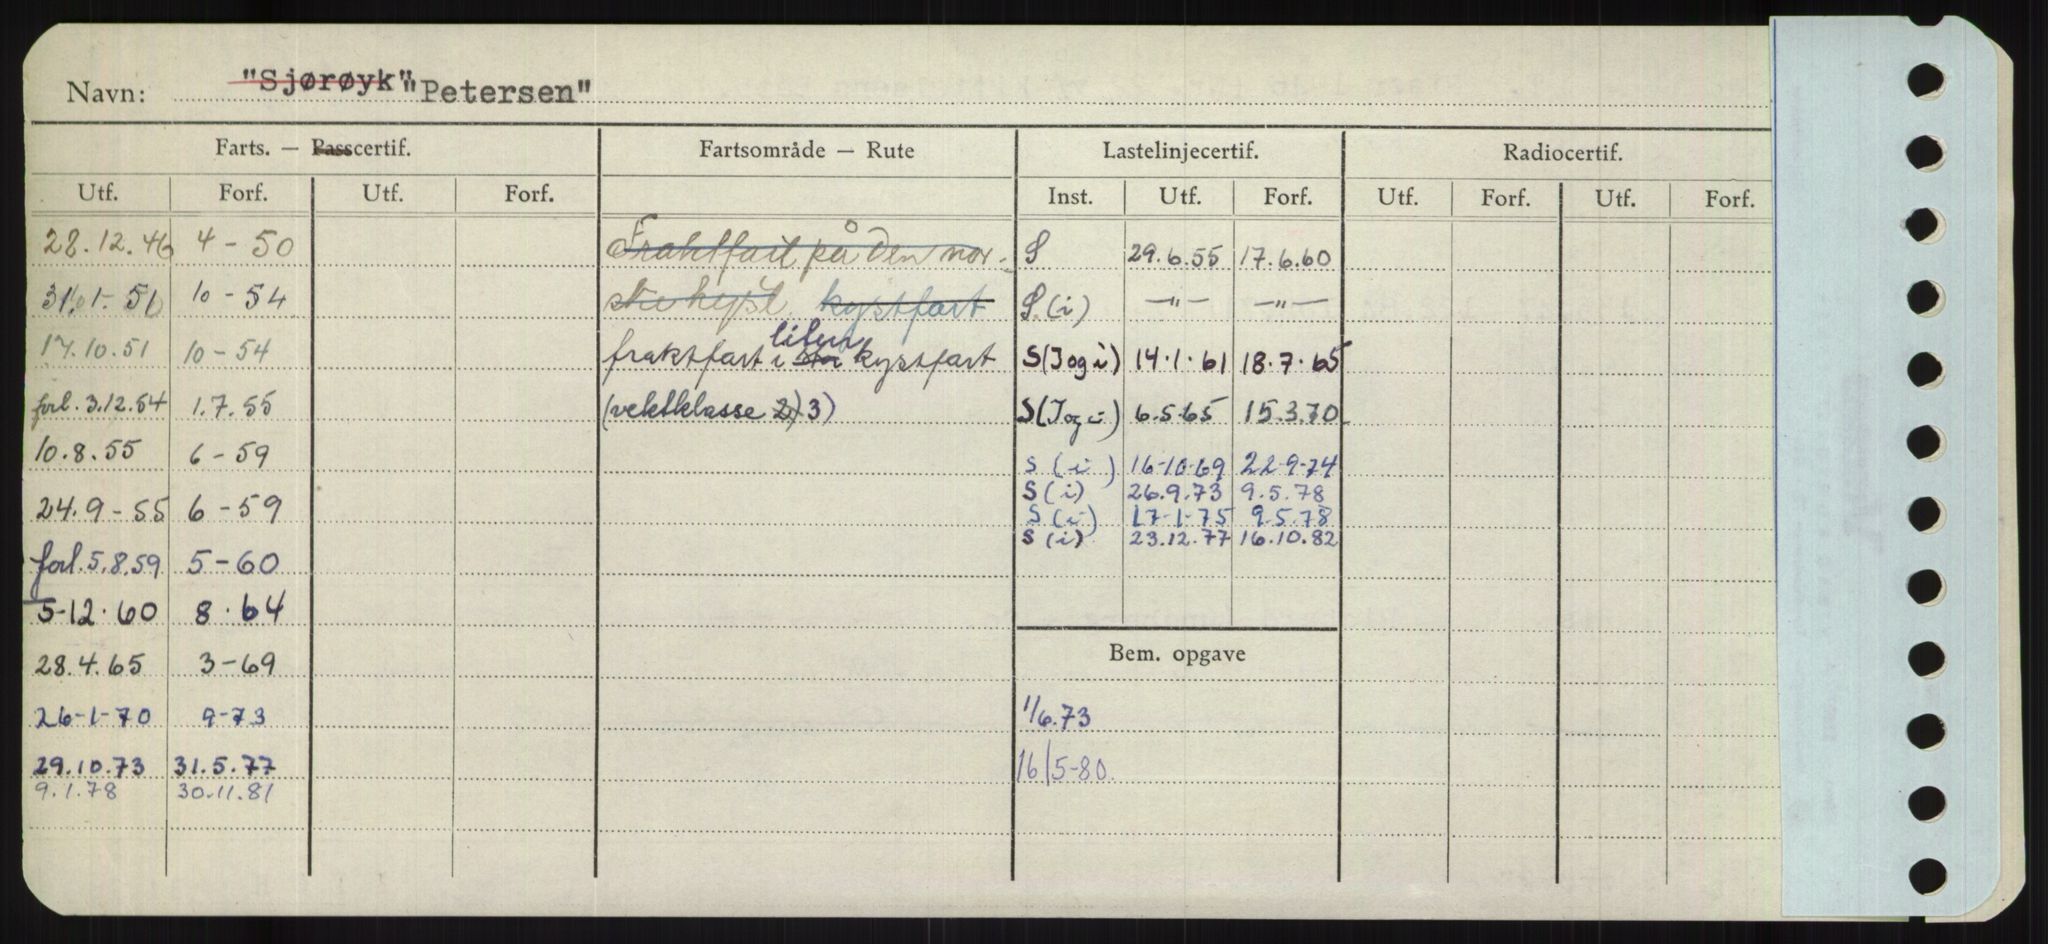 Navn: "Sjørøyk" "Petersen"
Farts. — Passcertif. Fartsområde — Rute Lastelinjecertif. Radiocertif.
Utf. Forf. Utf. Forf. Inst. Utf. Forf. Utf. Forf. Utf. Forf.
28.12.46 4-50 Fraktfart på den nor- S 29.6.55 17.6.60
31.1-51 10-54 ske kyst. kystfart S.(i) —"— —"—
17.10.51 10-54 fraktfart i stor liten kystfart S(I og i) 14.1.61 18.7.65
forl. 3.12.54 1.7.55 (vektklasse 2) 3) S(I og i) 6.5.65 15.3.70
10.8.55 6-59 S (i) 16-10-69 22-9-74
S (i) 26.9.73 9.5.78
24.9-55 6-59 S (i) 17-1-75 9.5.78
S (i) 23.12.77 16.10.82
forl. 5.8.59 5-60
5-12.60 8.64
28.4.65 3-69 Bem. opgave
26-1-70 9-73 1/6.73
29.10.73 31.5.77 16/5-80
9.1.78 30.11.81